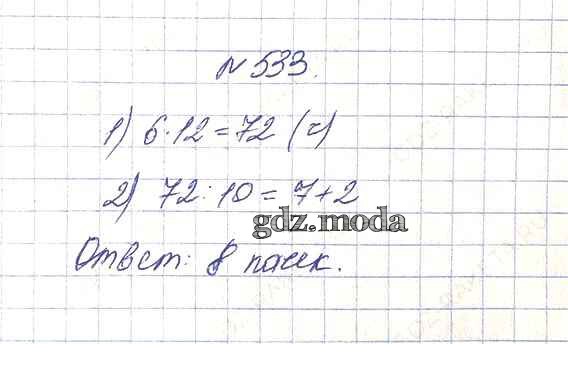 №533.
1) 6·12=72 (ч)
2) 72:10=7+2
gdz.moda
Ответ: 8 пачек.